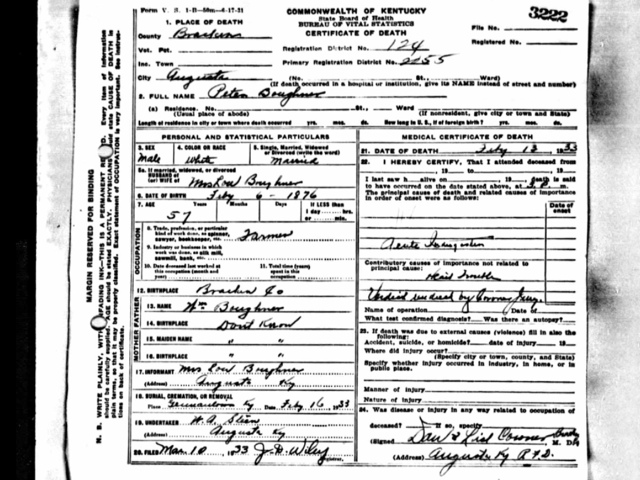 Form V. S. 1-B
COMMONWEALTH OF KENTUCKY
3222
State Board of Health
BUREAU OF VITAL STATISTICS
CERTIFICATE OF DEATH
File No.
Registered No.
1. PLACE OF DEATH
County Bracken
Vot. Pct.
Registration District No. 124
Inc. Town
Primary Registration District No. 2255
City Augusta (No. St., Ward)
(If death occurred in a hospital or institution, give its NAME instead of street and number)
2. FULL NAME Peter Boughner
(a) Residence. No. St., Ward
(Usual place of abode) (If nonresident, give city or town and State)
Length of residence in city or town where death occurred yrs. mos. ds. How long in U. S., if of foreign birth? yrs. mos. ds.
PERSONAL AND STATISTICAL PARTICULARS
3. SEX
Male
4. COLOR OR RACE
White
5. Single, Married, Widowed or Divorced (write the word)
Married
5a. If married, widowed, or divorced
HUSBAND of
(or) WIFE of Mrs Lou Boughner
6. DATE OF BIRTH Feby 6 - 1876
7. AGE Years Months Days
57
If LESS than
1 day hrs.
or min.
OCCUPATION
8. Trade, profession, or particular kind of work done, as spinner, sawyer, bookkeeper, etc. Farmer
9. Industry or business in which work was done, as silk mill, sawmill, bank, etc.
10. Date deceased last worked at this occupation (month and year)
11. Total time (years) spent in this occupation
12. BIRTHPLACE Bracken Co
MOTHER FATHER
13. NAME Wm Boughner
14. BIRTHPLACE Dont Know
15. MAIDEN NAME " "
16. BIRTHPLACE " "
17. INFORMANT Mrs Lou Boughner
(Address) Augusta Ky
18. BURIAL, CREMATION, OR REMOVAL
Place Germantown Ky Date Feby 16 1933
19. UNDERTAKER
(Address) Augusta Ky
20. FILED Mar 10 1933
MEDICAL CERTIFICATE OF DEATH
21. DATE OF DEATH Feby 1933
22. I HEREBY CERTIFY, That I attended deceased from
, 19 to , 19
I last saw h alive on , 19 death is said
to have occurred on the date stated above, at m.
The principal cause of death and related causes of importance in order of onset were as follows:
Date of onset
Acute
Contributory causes of importance not related to principal cause:
Heart Trouble
by Coroner Jury
Name of operation Date of
What test confirmed diagnosis? Was there an autopsy?
23. If death was due to external causes (violence) fill in also the following:
Accident, suicide, or homicide? date of injury 19
Where did injury occur?
(Specify city or town, county, and State)
Specify whether injury occurred in industry, in home, or in public place.
Manner of injury
Nature of injury
24. Was disease or injury in any way related to occupation of deceased? If so, specify
(Signed) Coroner M. D.
(Address) Augusta Ky R F D.
MARGIN RESERVED FOR BINDING